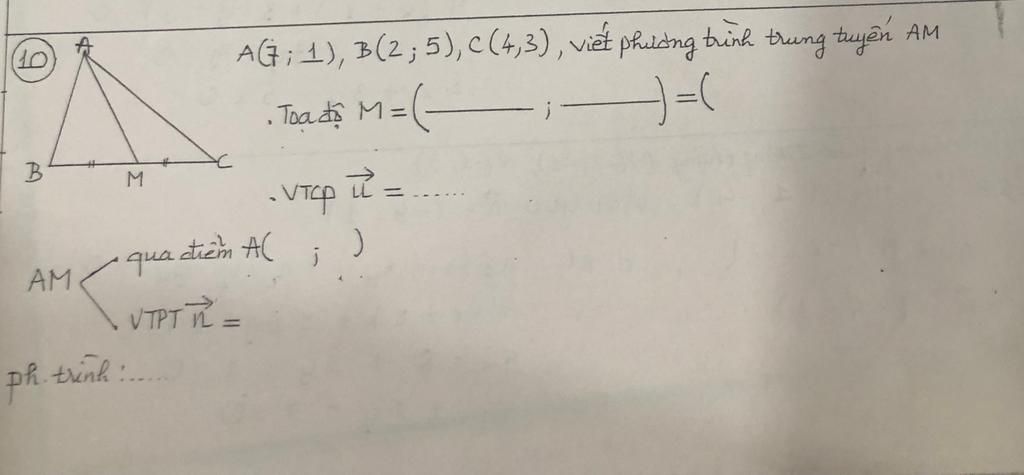 10 A(7 ; 1), B(2 ; 5), C(4,3), viết phương trình trung tuyến AM
A
. Toạ độ M = ( ——— ; ——— ) = (
B M C
. VTCP u⃗ = ......
AM qua điểm A( ; )
VTPT n⃗ =
ph. trình : .....